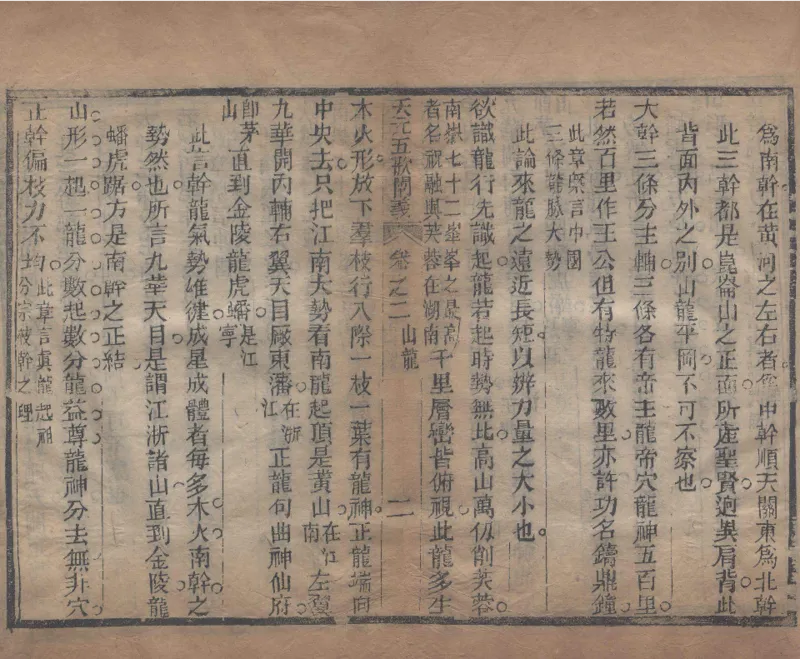 爲南幹在黃河之左右者爲中幹順天關東爲北幹
此三幹都是崑崙山之正面所産聖賢迥異肩背此
背面內外之別山龍平岡不可不察也
大幹三條分主輔三條各有帝主龍帝穴龍神五百里
若然百里作王公但有特龍來數里亦許功名鑄鼎鐘
此章槩言中國三條龍脉大勢
此論來龍之遠近長短以辨力量之大小也
欲識龍行先識起龍若起時勢無比高山萬仭削芙蓉
南嶽七十二峯峯之最高者名祝融與芙蓉在湖南千里層巒皆俯視此龍多生
天元五歌闡義 卷之二 山龍 二
木火形放下羣枝行八際一枝一葉有龍神正龍端向
中央去只把江南大勢看南龍起頂是黃山在江南左翼
九華開丙輔右翼天目厰東藩在浙江正龍句曲神仙府
卽茅山直到金陵龍虎蟠是江寧
此言幹龍氣勢雄健成星成體者每多木火南幹之
勢然也所言九華天目是謂江浙諸山直到金陵龍
蟠虎踞方是南幹之正結
山形一起一龍分數起數分龍益尊龍神分去無非穴
正幹偏枝力不均此章言眞龍起祖出分宗枝幹之理